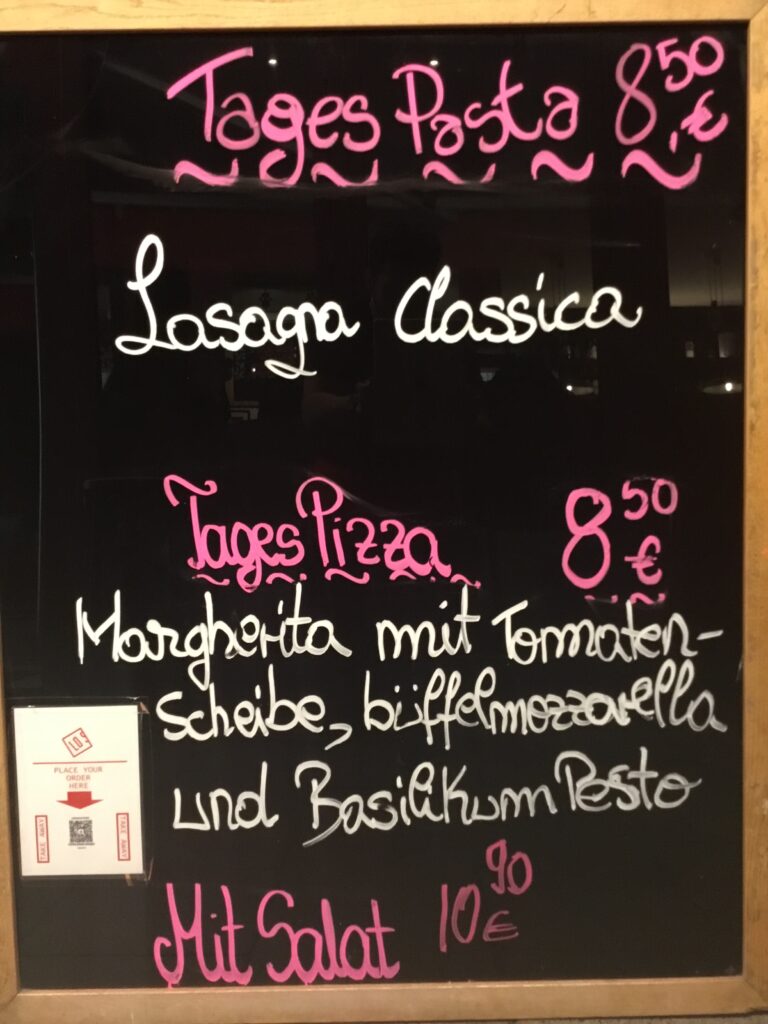 Tages Pasta 8,50 €
Lasagna Classica
Tages Pizza 8 50 €
Margherita mit Tomaten-
scheibe, büffelmozzarella
und Basilikum Pesto
LOS
PLACE YOUR
ORDER
HERE
TAKE AWAY
TAKE AWAY
Mit Salat 10 90 €